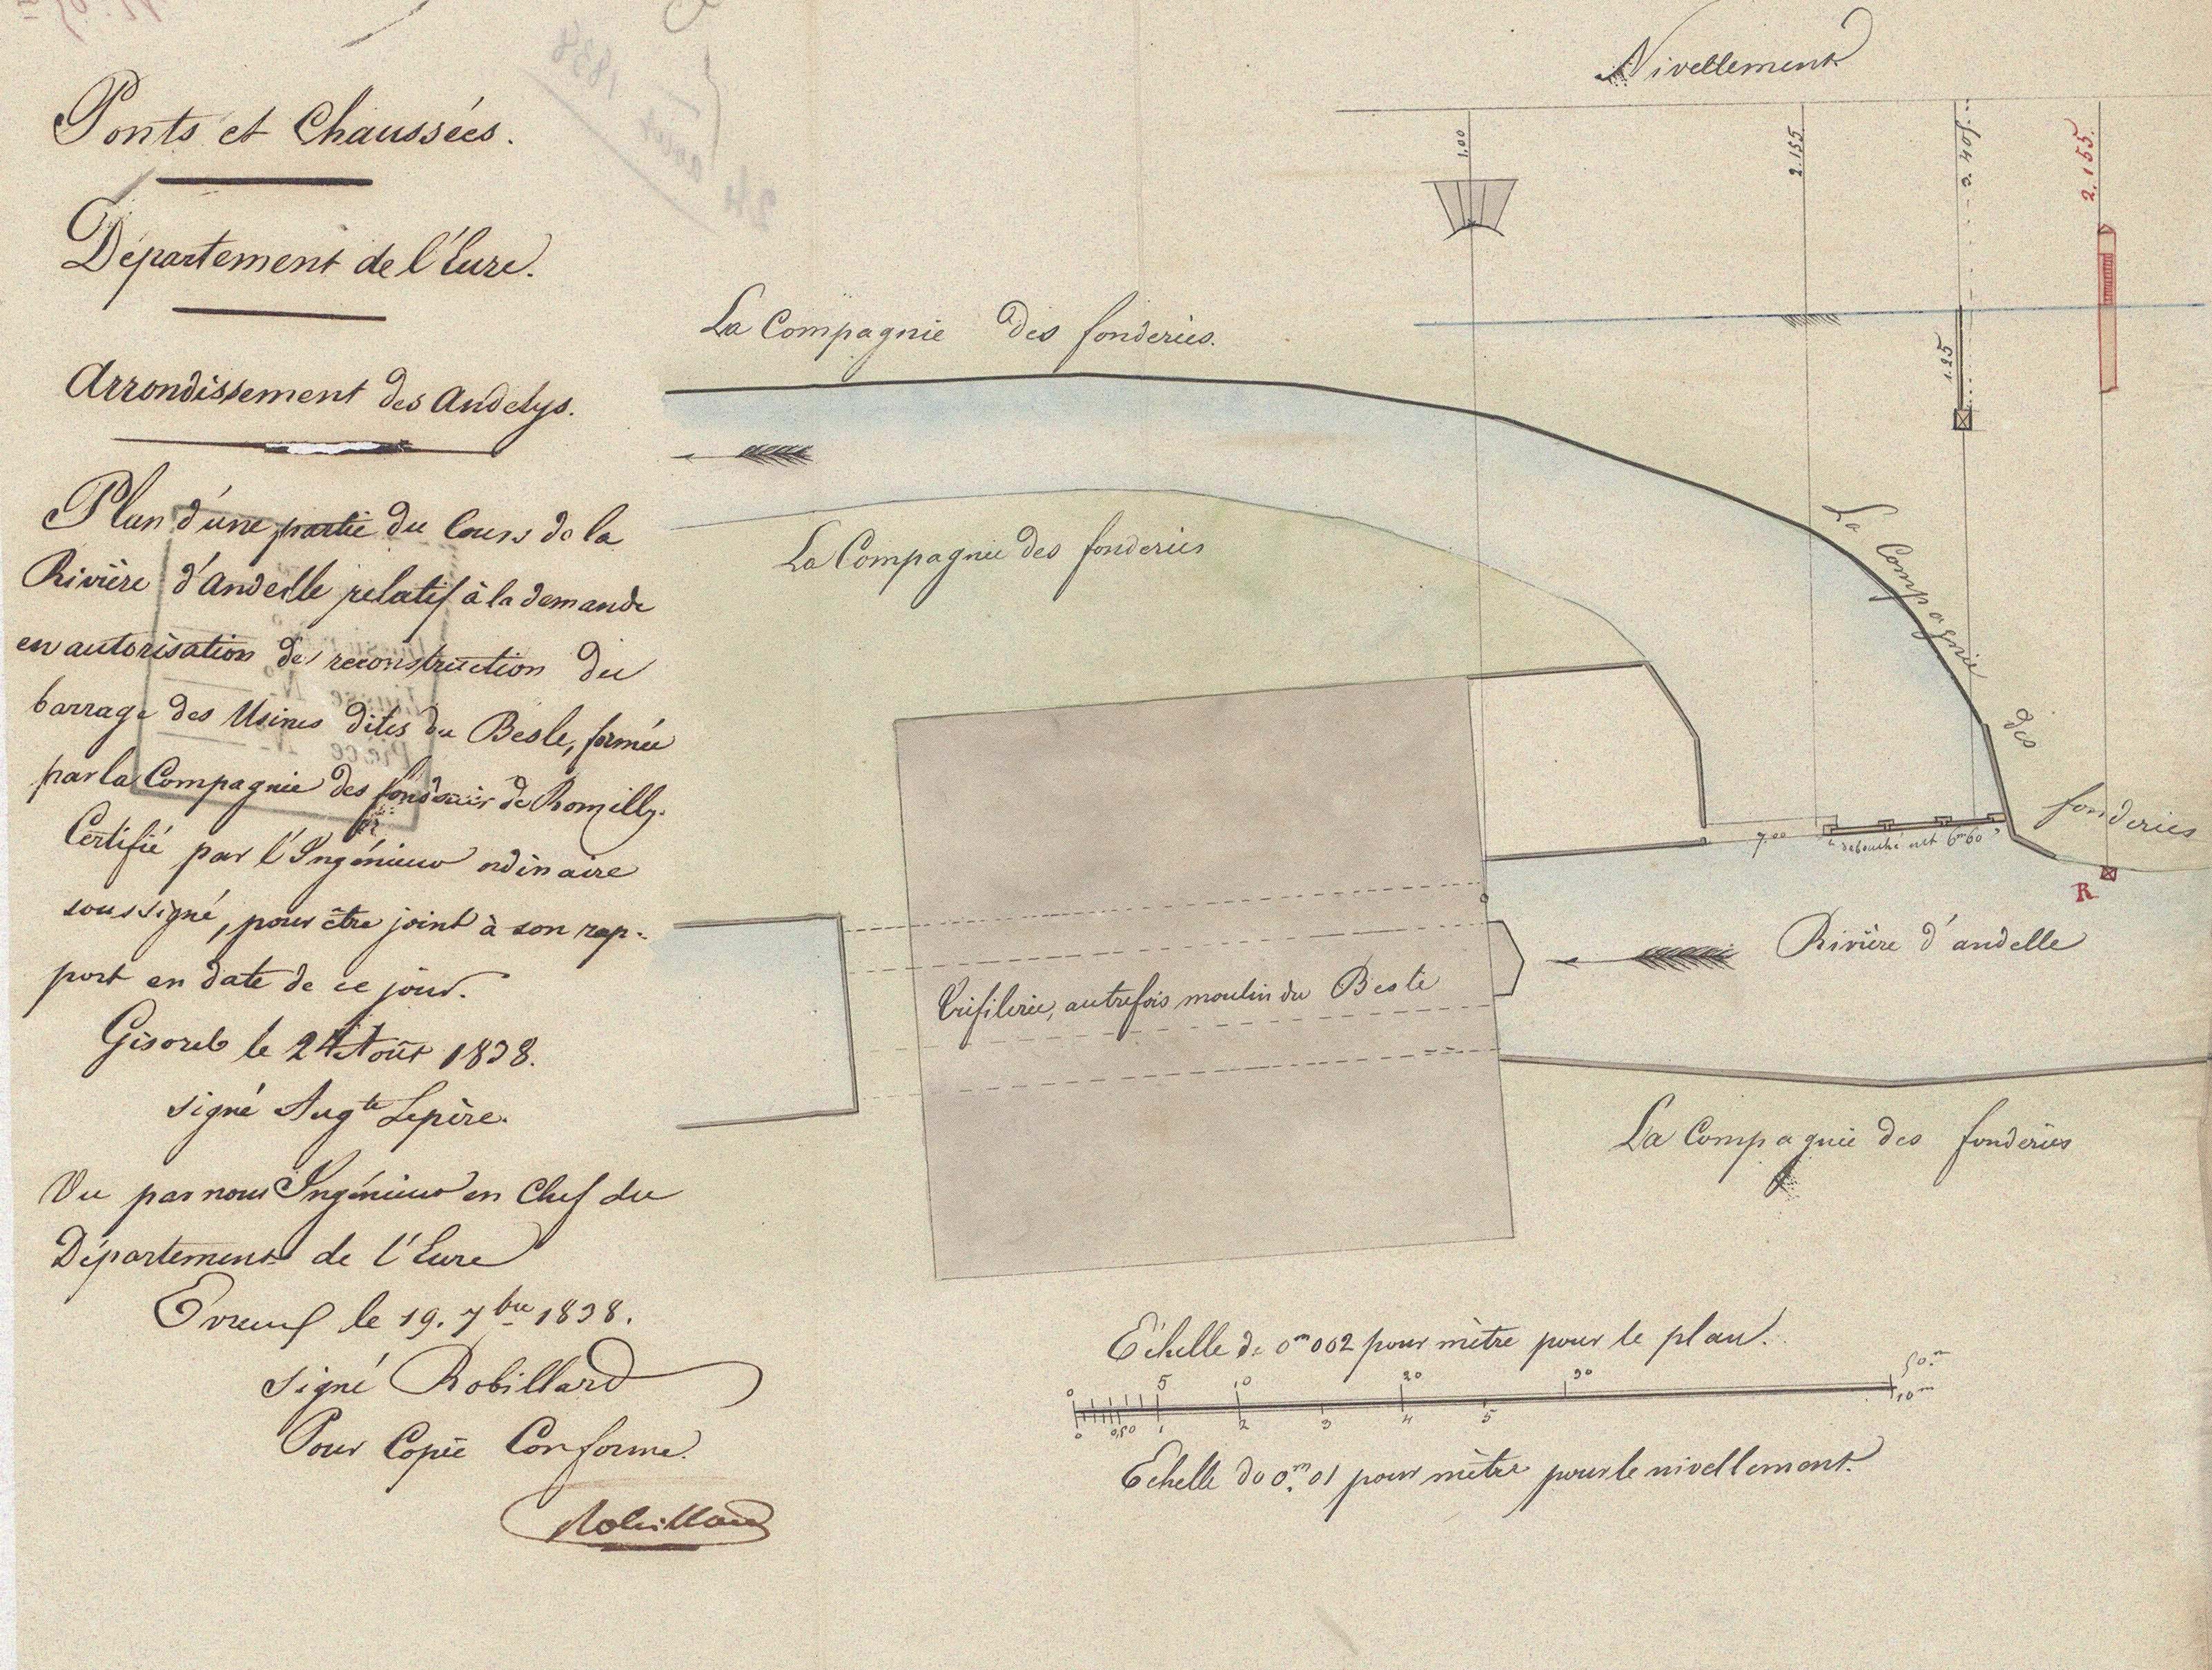 Ponts et Chaussées.
Département de l'Eure.
Arrondissement des Andelys.
Plan d'une partie du Cours de la
Rivière d'Andelle relatif à la demande
en autorisation de reconstruction du
barrage des Usines dites du Besle, formée
par la Compagnie des fonderies de Romilly.
Certifié par l'Ingénieur ordinaire
soussigné, pour être joint à son rap-
port en date de ce jour.
Gisors le 24 Août 1838.
signé Augte Lepère.
Vu par nous Ingénieur en Chef du
Département de l'Eure
Evreux le 19. 7bre 1838.
signé Robillard
Pour Copie Conforme.
Robillard
24 août 1838
Nivellement
1,00
2.155
2.405
2.155.
1.25
La Compagnie des fonderies.
La Compagnie des fonderies
La Compagnie des fonderies
7,00
débouché net 6m60
R
Rivière d'andelle
Tréfilerie, autrefois moulin du Besle
La Compagnie des fonderies
Échelle de 0m002 pour mètre pour le plan.
0 5 10 20 30 50m
0 0,50 1 2 3 4 5 10m
Echelle de 0m.01 pour mètre pour le nivellement.